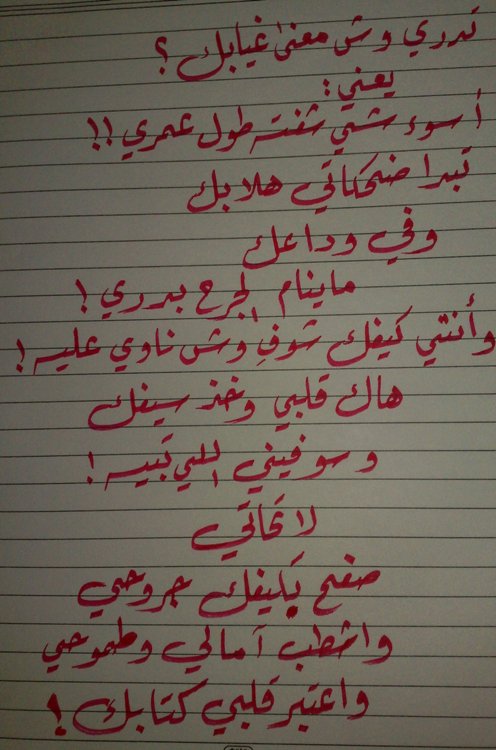 تدري وش معنى غيابك ؟
يعني :
أسوء شيٍ شفته طول عمري !!
تبدا ضحكاتي هلا بك
وفي وداعك
ماينام الجرح بدري !
وأنتي كيفك شوفِ وش ناوي عليه !
هاك قلبي وخذ سيفك
وسو فيني اللي تبيه !
لا تحاتي
صفح بكيفك جروحي
واشطب آمالي وطموحي
واعتبر قلبي كتابك !